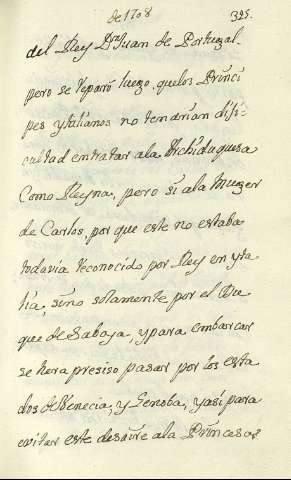 de 1708
325.
del Rey Dn Juan de Portugal.
pero se reparó luego, quelos Princi
pes ytalianos no tendrían difi-
cultad entratar ala Archiduquesa
Como Reyna, pero si ala Muger
de Carlos, por que este no estaba
todavia reconocido por Rey en yta
lia, sino solamente por el Du
que de Saboya, y para embarcar
se hera presiso pasar por los esta
dos de Venecia, y Genoba, y así para
evitar este desaire ala Princesa se